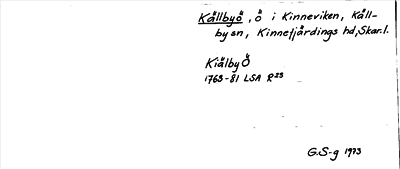 Kållbyö, ö i Kinneviken, Käll-
by sn, Kinnefjärdings hd, Skar.l.
Kiälby Ö
1765-81 LSA R23
G.S-g 1973